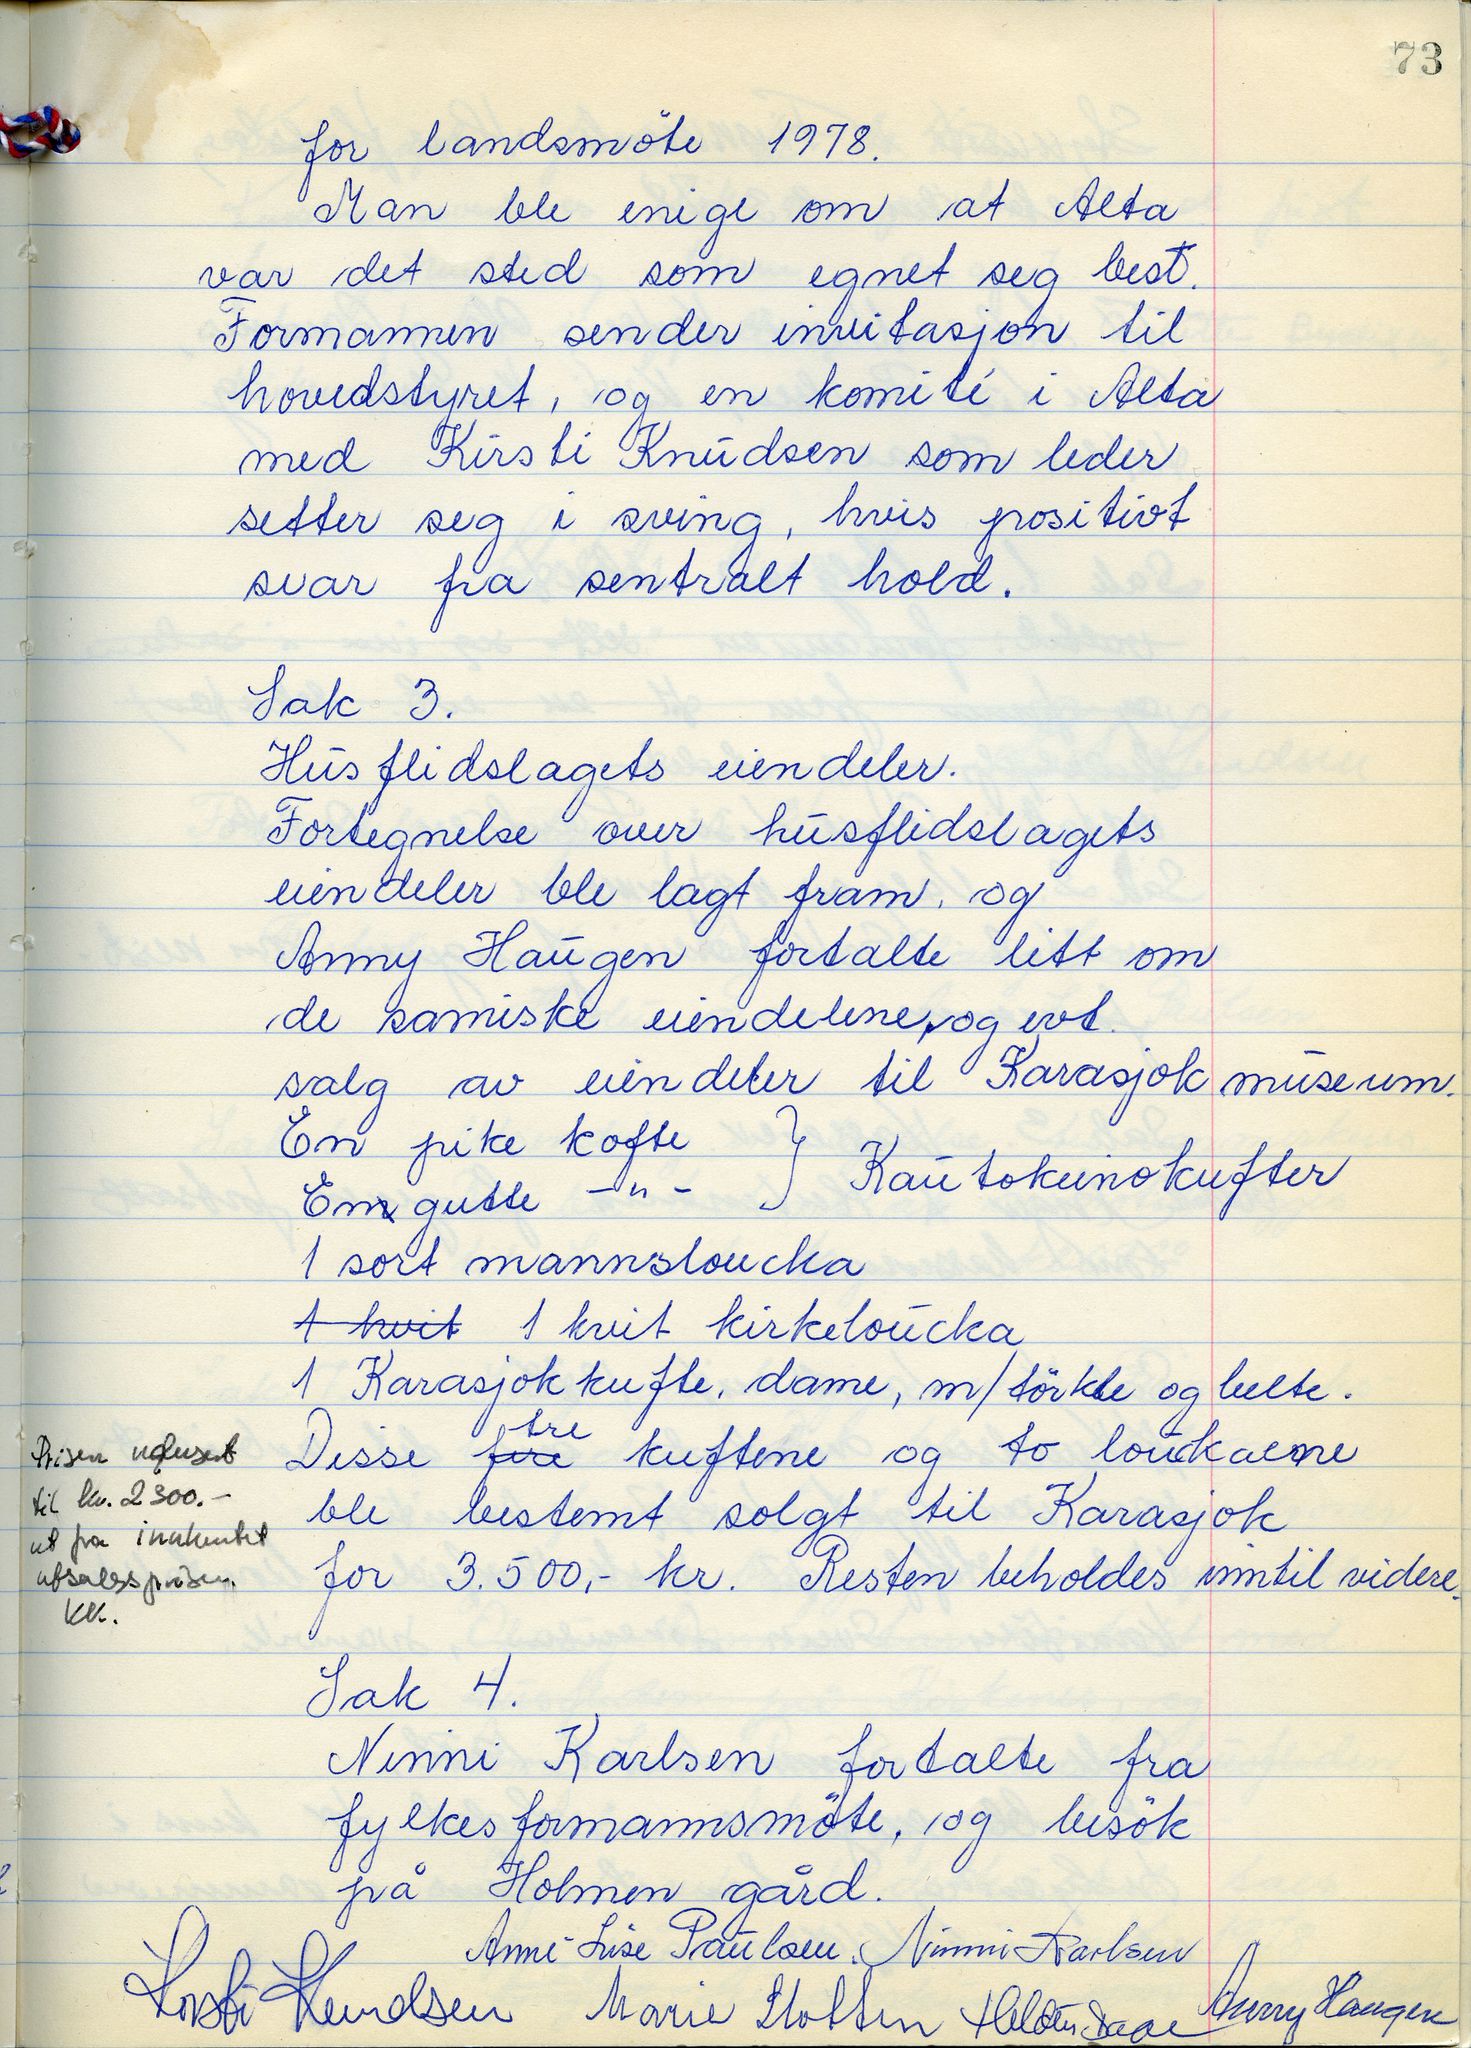 73
for landsmöte 1978.
Man ble enige om at Alta
var det sted som egnet seg best.
Formannen sender invitasjon til
hovedstyret, og en komité i Alta
med Kirsti Knudsen som leder
setter seg i sving, hvis positivt
svar fra sentralt hold.
Sak 3.
Husflidslagets eiendeler.
Fortegnelse over husflidslagets
eiendeler ble lagt fram, og
Anny Haugen fortalte litt om
de samiske eiendelene, og evt.
salg av eiendeler til Karasjok museum.
En pike kofte
En gutte -"-
} Kautokeinokufter
1 sort mannsloucka
1 hvit 1 kvit kirkeloucka
1 Karasjokkufte, dame, m/törkle og belte.
Disse fire tre kuftene og to loukaene
ble bestemt solgt til Karasjok
for 3.500,- kr. Resten beholdes inntil videre.
Prisen
til kr. 2300.-
ut fra innhentet
utsalgsprisen.
KK.
Sak 4.
Ninni Karlsen fortalte fra
fylkesformannsmöte, og besök
på Holmen gård.
Anne-Lise Paulsen. Ninni Karlsen
Kirsti Knudsen Marie Anny Haugen